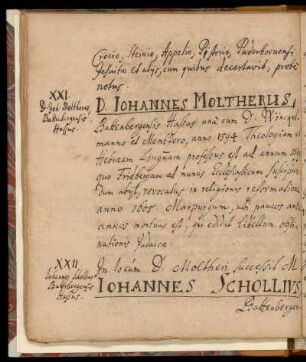 Crocio, Steinio, Appelio, Pistorio, Paderbornensi
Jesuita et alys, cum quibus decertavit, probe
notus.
XXI.
D. Joh. Moltherus
Battenbergensis
Hassus.
D. IOHANNES MOLTHERUS,
Battenbergensis Hassus unà cum D. Winckel-
manno et Mentzero, anno 1594 Theologiam et
Hebraeam Linguam professus est ad annum
quo Fridbergam ad munus Ecclesiasticum
dum abyt, revocatus in religionis reformatione
anno 1605 Marpurgum, ubi paucos ante
annos mortuus est, qui edidit libellum
nationis Judaica
XXII
Johannes Schollius
Battenbergensis
Hassus.
In locum D. Moltheri successit M.
IOHANNES SCHOLLIUS
Battenbergen